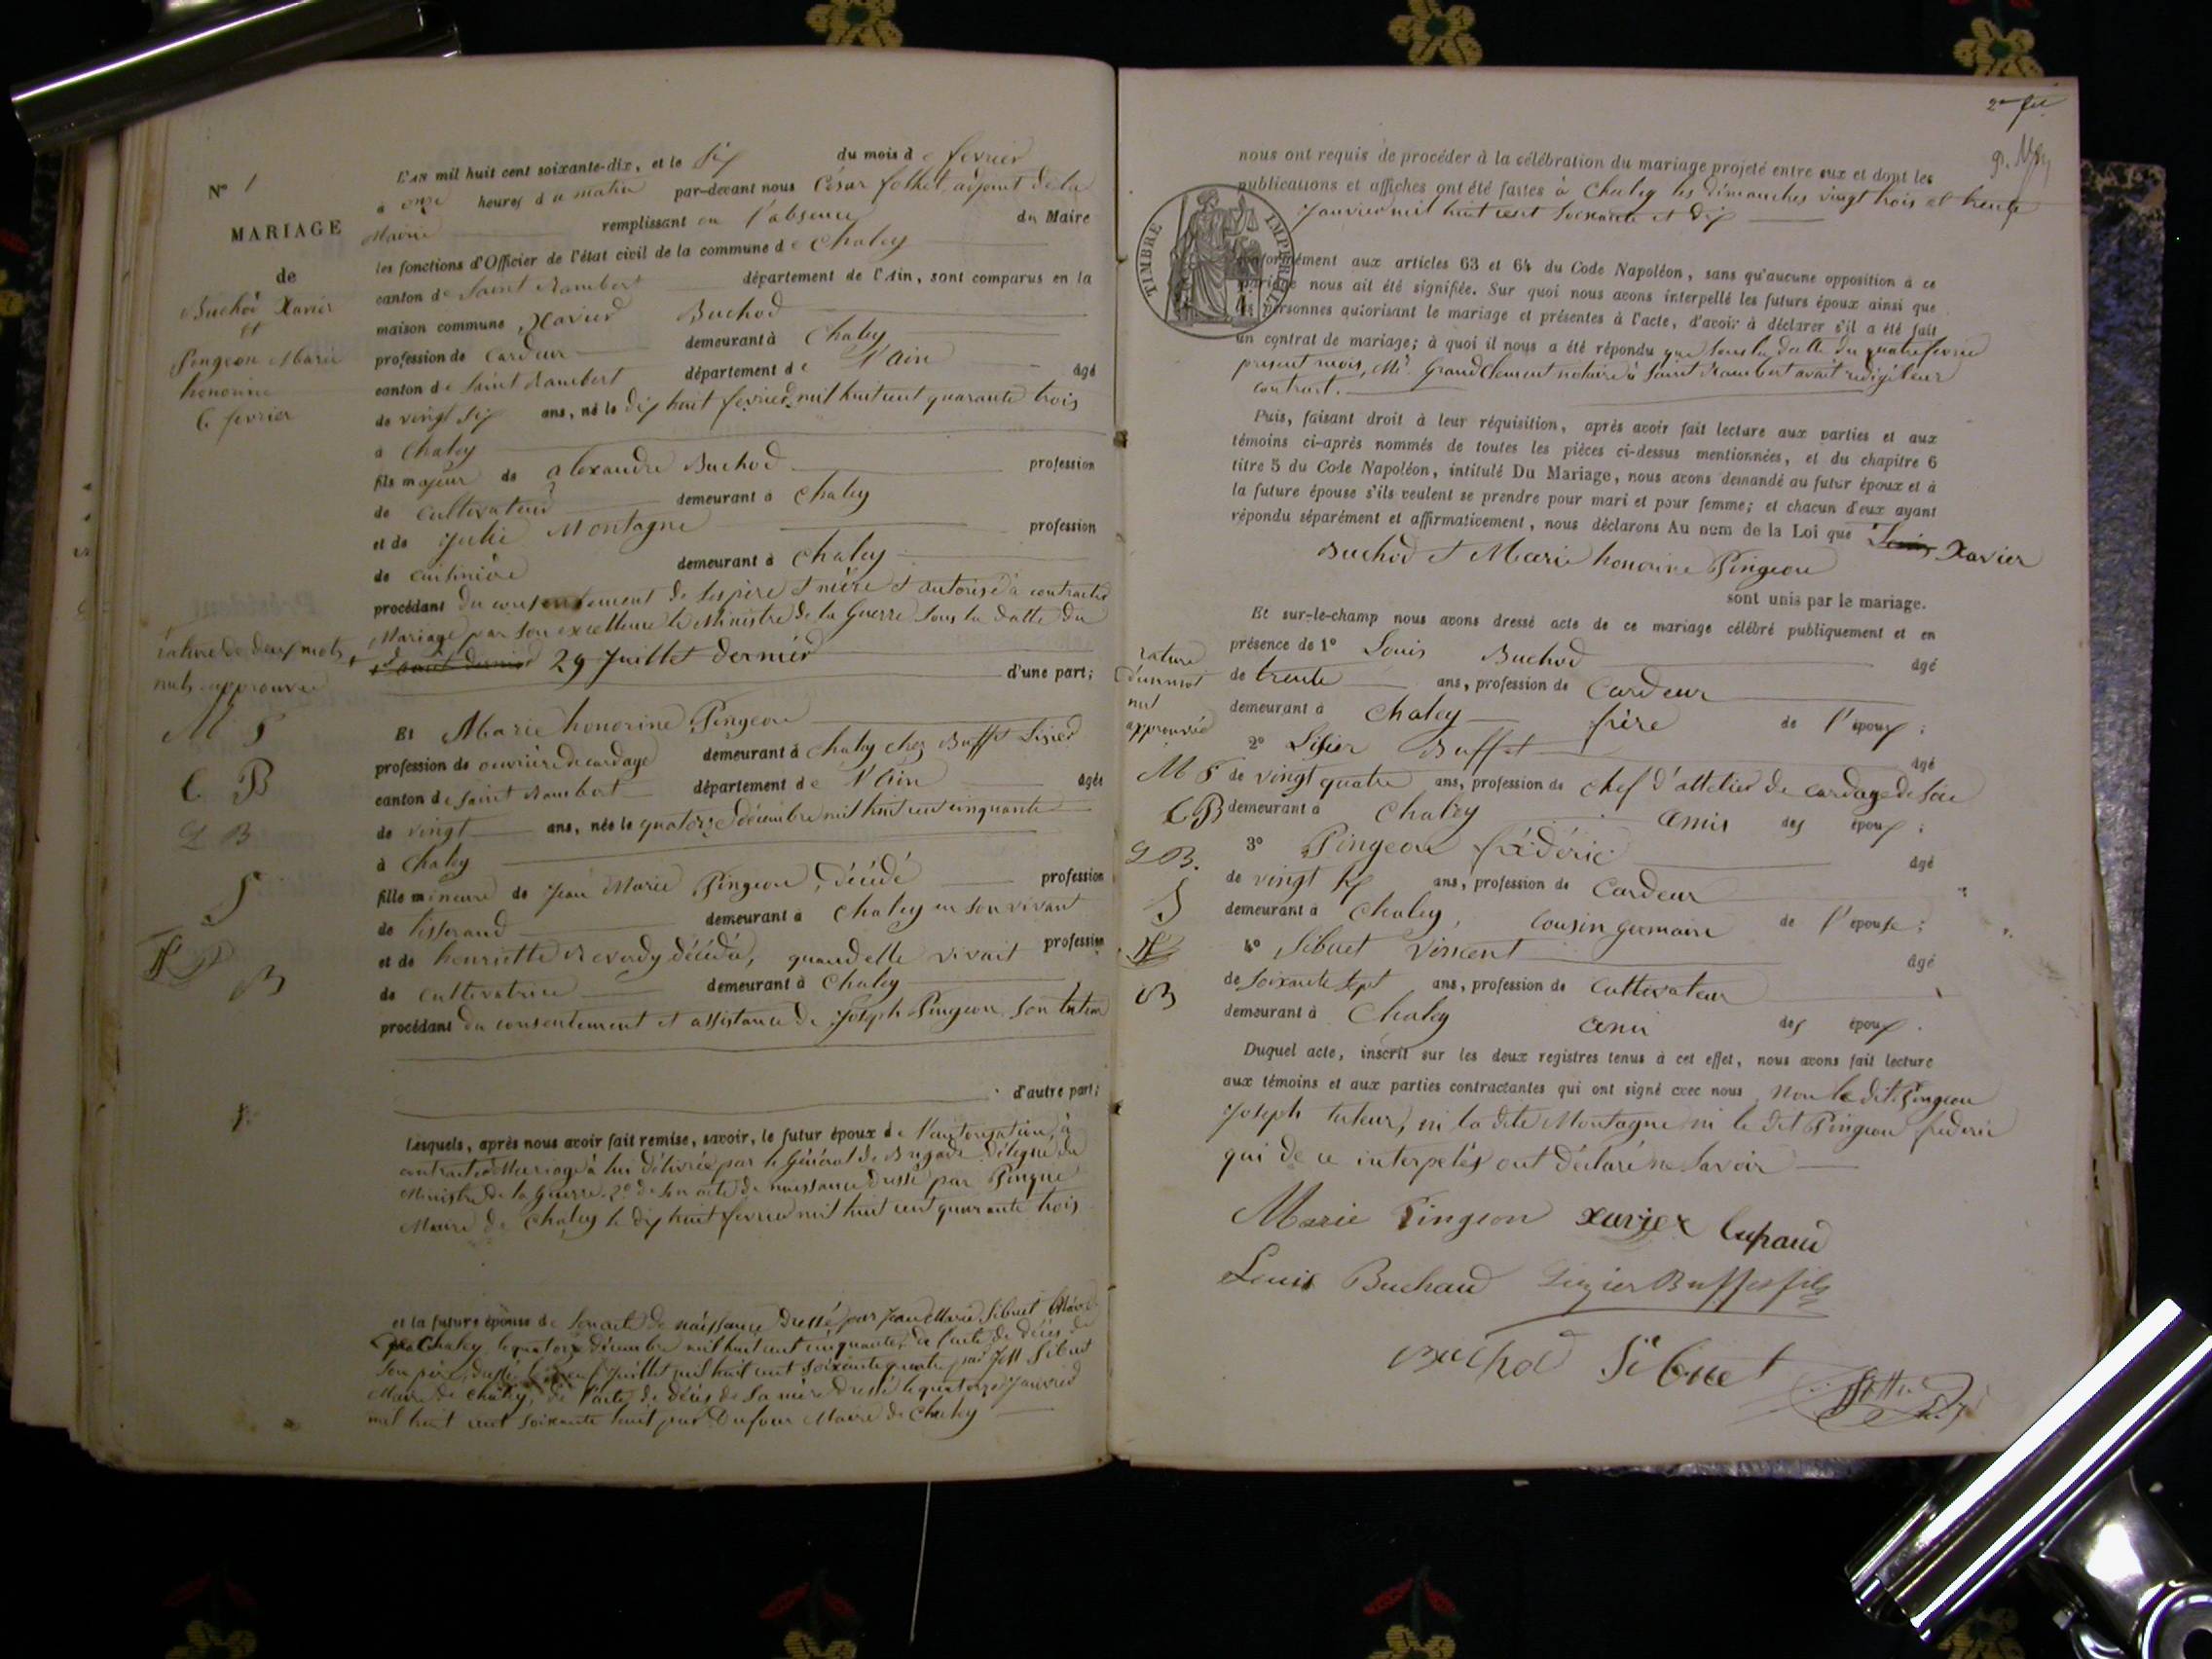 N° 1
MARIAGE
de
Buchod Xavier
et
Pingeon Marie
honorine
6 fevrier
L'AN mil huit cent soixante-dix, et le Six du mois de fevrier
a onze heures du matin par-devant nous César folhet adjoint de la
Mairie remplissant en l'absence du Maire
les fonctions d'Officier de l'état civil de la commune de Chaley
canton de Saint Rambert département de l'Ain, sont comparus en la
maison commune Xavier Buchod
profession de Cardeur demeurant à Chaley
canton de Saint Rambert département de l'Ain âgé
de vingt Six ans, né le dix huit fevrier mil huit cent quarante trois
à Chaley
fils majeur de alexandre Buchod profession
de Cultivateur demeurant à Chaley
et de Julie Montagne profession
de Cuisinière demeurant à Chaley
procédant du consentement de Ses père et mère et autorisé à contracter
Mariage par Son excellence le Ministre de la Guerre Sous la datte du
29 Juillet dernier
d'une part;
rature de deux mots
nuls approuvée
M P
C B
L B
S
B
Et Marie honorine Pingeon
profession de ouvrière de cardage demeurant à Chaley chez Buffet Lisier
canton de Saint Rambert département de l'Ain âgée
de vingt ans, née le quatorze décembre mil huit cent cinquante
à Chaley
fille mineure de Jean Marie Pingeon, décédé profession
de tisserand demeurant à Chaley en Son vivant
et de henriette Reverdy décédée, quand elle vivait profession
de Cultivatrice demeurant à Chaley
procédant du consentement et assistance de Joseph Pingeon, Son tuteur
d'autre part;
Lesquels, après nous avoir fait remise, savoir, le futur époux de l'autorisation, à
contracter Mariage à lui délivrée par le Général de Brigade délégué du
Ministre de la Guerre. 2° de Son acte de naissance dressé par Pingue
Maire de Chaley le dix huit fevrier mil huit cent quarante trois
et la future épouse de Son acte de naissance dressé par Jean Marie Sibuet Maire
de Chaley le quatorze décembre mil huit cent cinquante, de l'acte de décès de
Son père, dressé le neuf Juillet mil huit cent Soixante quatre par Jph Sibuet
Maire de Chaley, de l'acte de décès de Sa mère dressé le quatorze Janvier
mil huit cent Soixante huit par Dufour Maire de Chaley
nous ont requis de procéder à la célébration du mariage projeté entre eux et dont les
publications et affiches ont été faites à Chaley les dimanches vingt trois et trente
Janvier mil huit cent Soixante et dix
TIMBRE IMPERIAL
conformément aux articles 63 et 64 du Code Napoléon, sans qu'aucune opposition à ce
mariage nous ait été signifiée. Sur quoi nous avons interpellé les futurs époux ainsi que
les personnes autorisant le mariage et présentes à l'acte, d'avoir à déclarer s'il a été fait
un contrat de mariage; à quoi il nous a été répondu que Sous la datte du quatre fevrier
present mois, Me Grand Clement notaire à Saint Rambert avait redigé leur
contrat.
Puis, faisant droit à leur réquisition, après avoir fait lecture aux parties et aux
témoins ci-après nommés de toutes les pièces ci-dessus mentionnées, et du chapitre 6
titre 5 du Code Napoléon, intitulé Du Mariage, nous avons demandé au futur époux et à
la future épouse s'ils veulent se prendre pour mari et pour femme; et chacun d'eux ayant
répondu séparément et affirmativement, nous déclarons Au nom de la Loi que Louis Xavier
Buchod et Marie honorine Pingeon
sont unis par le mariage.
Et sur-le-champ nous avons dressé acte de ce mariage célébré publiquement et en
présence de 1° Louis Buchod âgé
de trente ans, profession de Cardeur
demeurant à Chaley frère de l'époux;
2° Lisier Buffet âgé
de vingt quatre ans, profession de chef d'attelier de cardage de Soie
demeurant à Chaley amis des époux;
3° Pingeon frédéric âgé
de vingt ans, profession de Cardeur
demeurant à Chaley, Cousin germain de l'épouse;
4° Sibuet Vincent âgé
de Soixante Sept ans, profession de Cultivateur
demeurant à Chaley ami des époux.
rature
d'un mot
nul
approuvée
M P
C B
L B.
S
B
Duquel acte, inscrit sur les deux registres tenus à cet effet, nous avons fait lecture
aux témoins et aux parties contractantes qui ont signé avec nous Non le dit Pingeon
Joseph tuteur, ni la dite Montagne ni le dit Pingeon frédéric
qui de ce interpelés ont déclaré ne Savoir
Marie Pingeon Xavier
Louis Buchaud Lizier Buffet fils
Buchod Sibuet